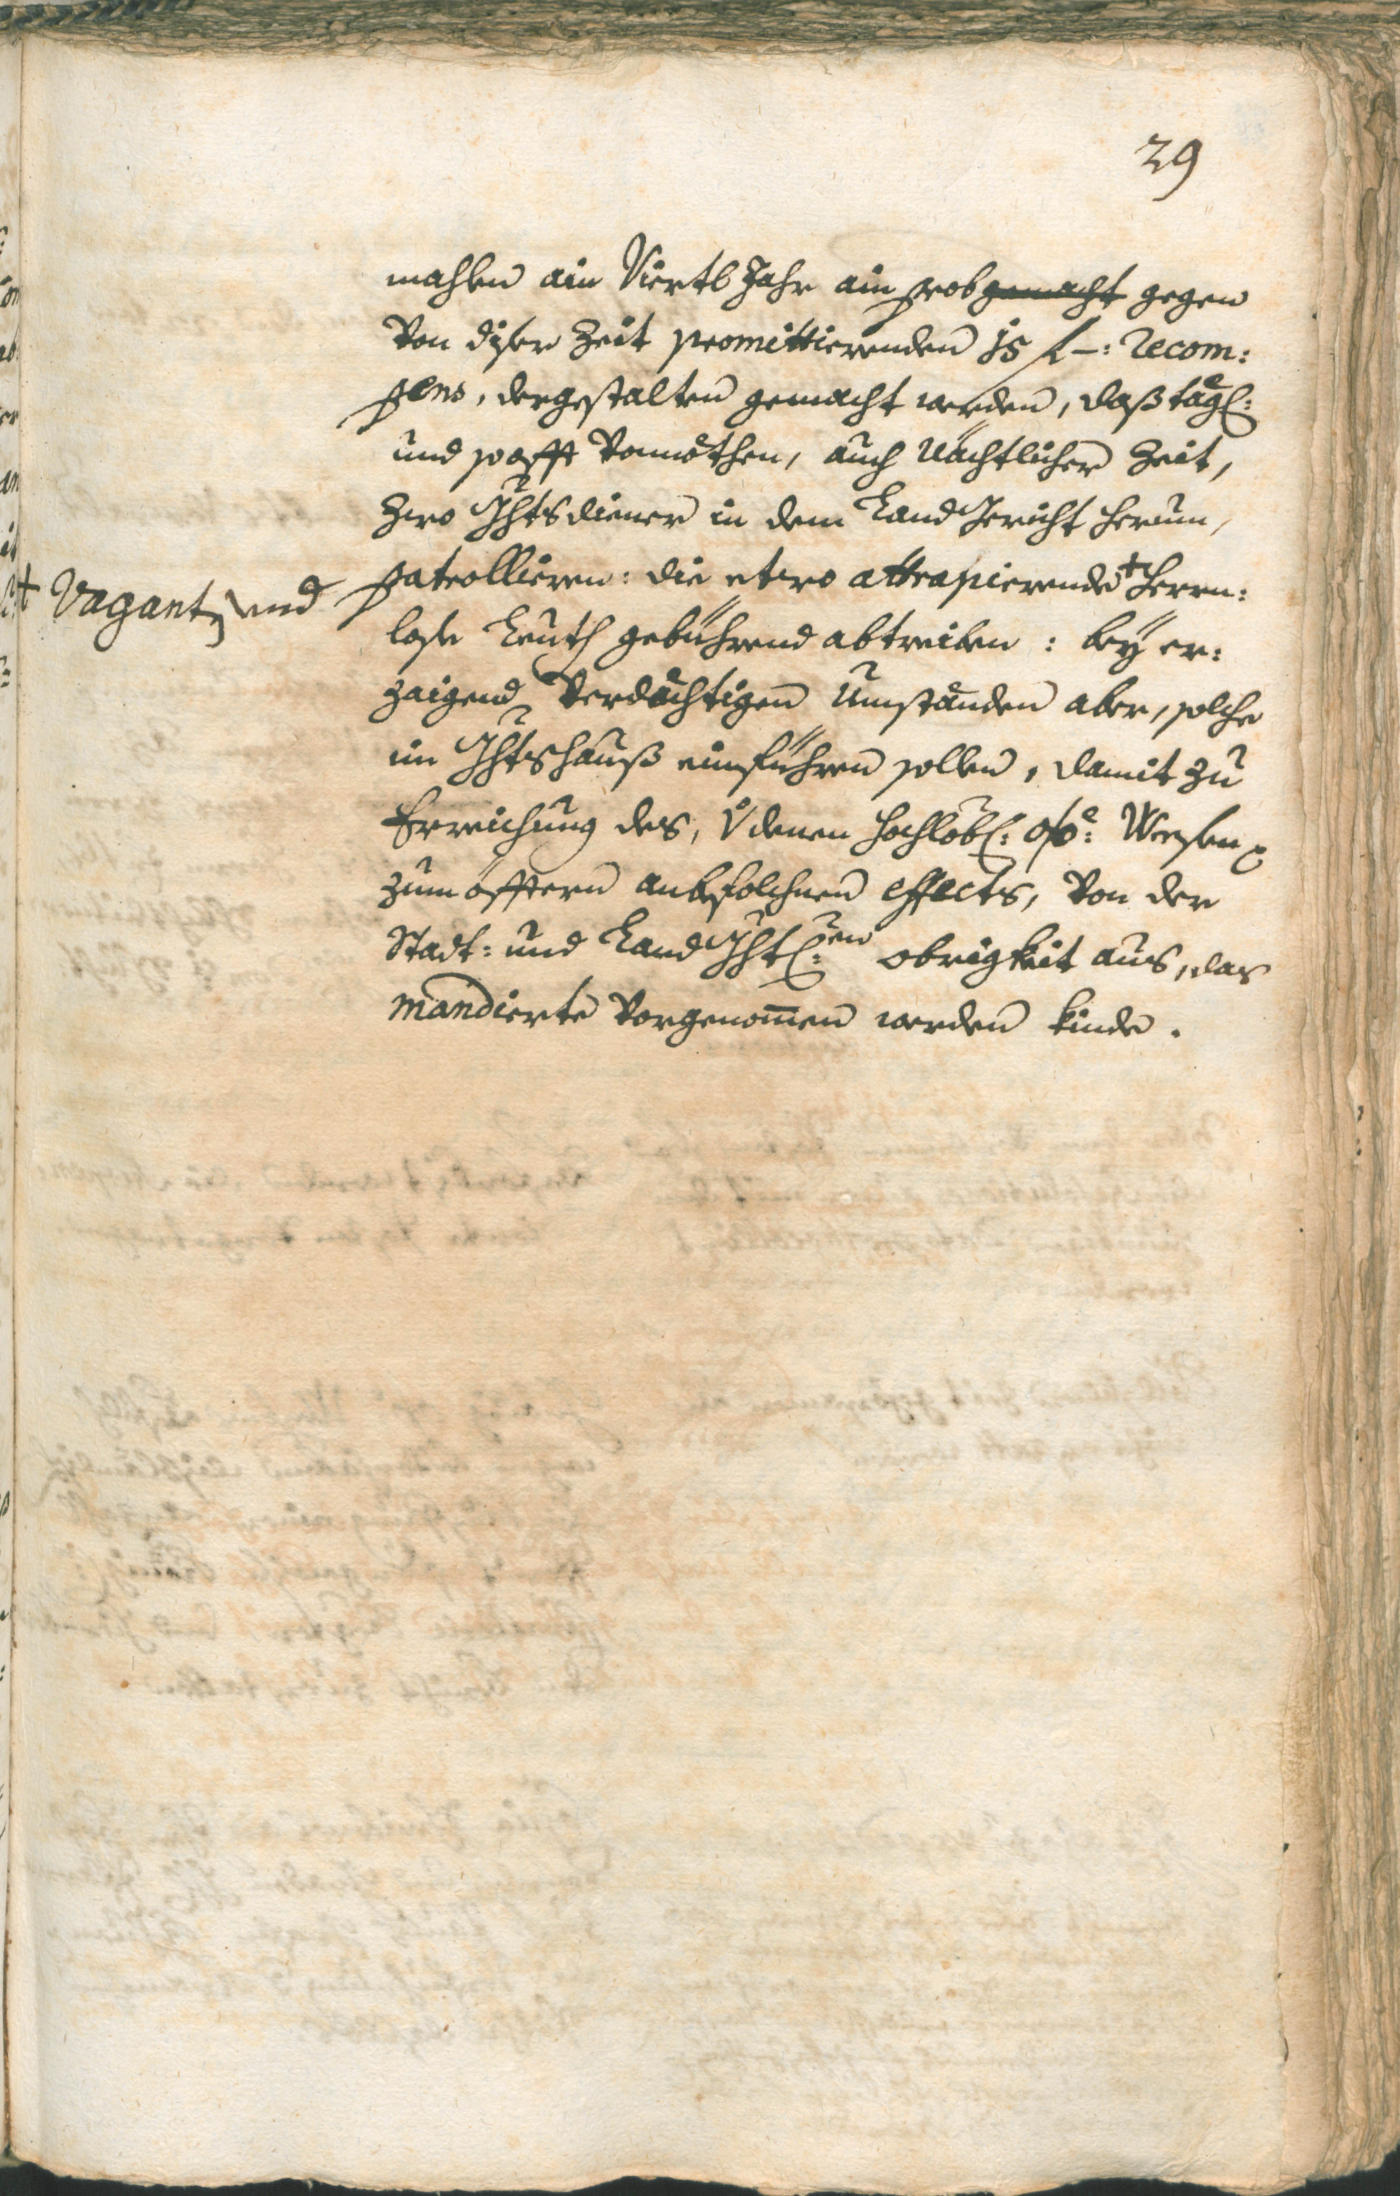 29
mahlen ain Viertl Jahr ain prob gemacht gegen
Von diser Zeit promittierenden 15 f –: Recom:
pens, dergestalten gemacht werden, daß tägl:
und so offt Vonnöthen, auch Nächtlicher Zeit,
Zwo Ghtsdiener in dem Land Gericht herum,
patrollieren: die etwo attrapierende + Herrn:
+ Vagant und
lose Leuth gebührend abtreiben: bey er:
zaigend Verdächtigen Umständen aber, solche
im Ghtshauß einführen sollen, damit zu
Erreichung des, V denen hochlöbl:
zum öfftern anbefolchnen effects, Von der
Stadt: und Land Ghtl:en obrigkeit aus, das
mandierte Vorgenommen werden kinde.